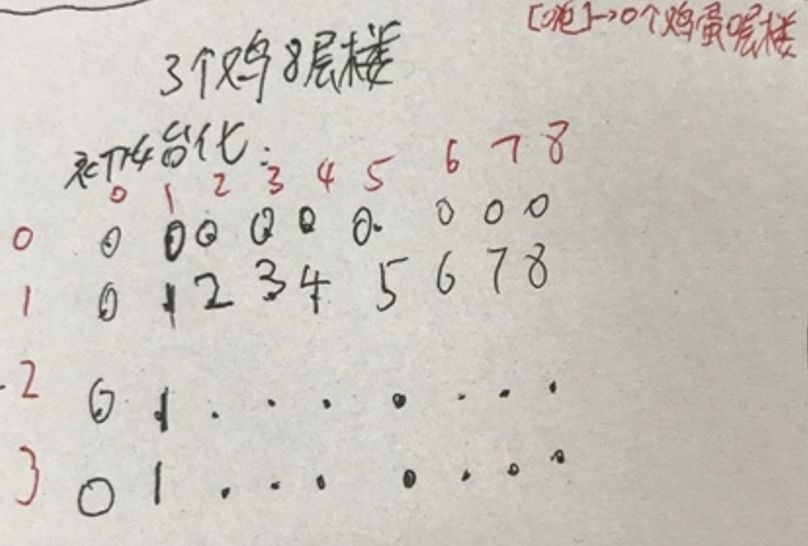 [0,0]→0个鸡蛋0层楼
3个鸡8层楼
初始化:
0 1 2 3 4 5 6 7 8
0 0 0 0 0 0 0 0 0 0
1 0 1 2 3 4 5 6 7 8
2 0 1 . . . . . . .
3 0 1 . . . . . . .